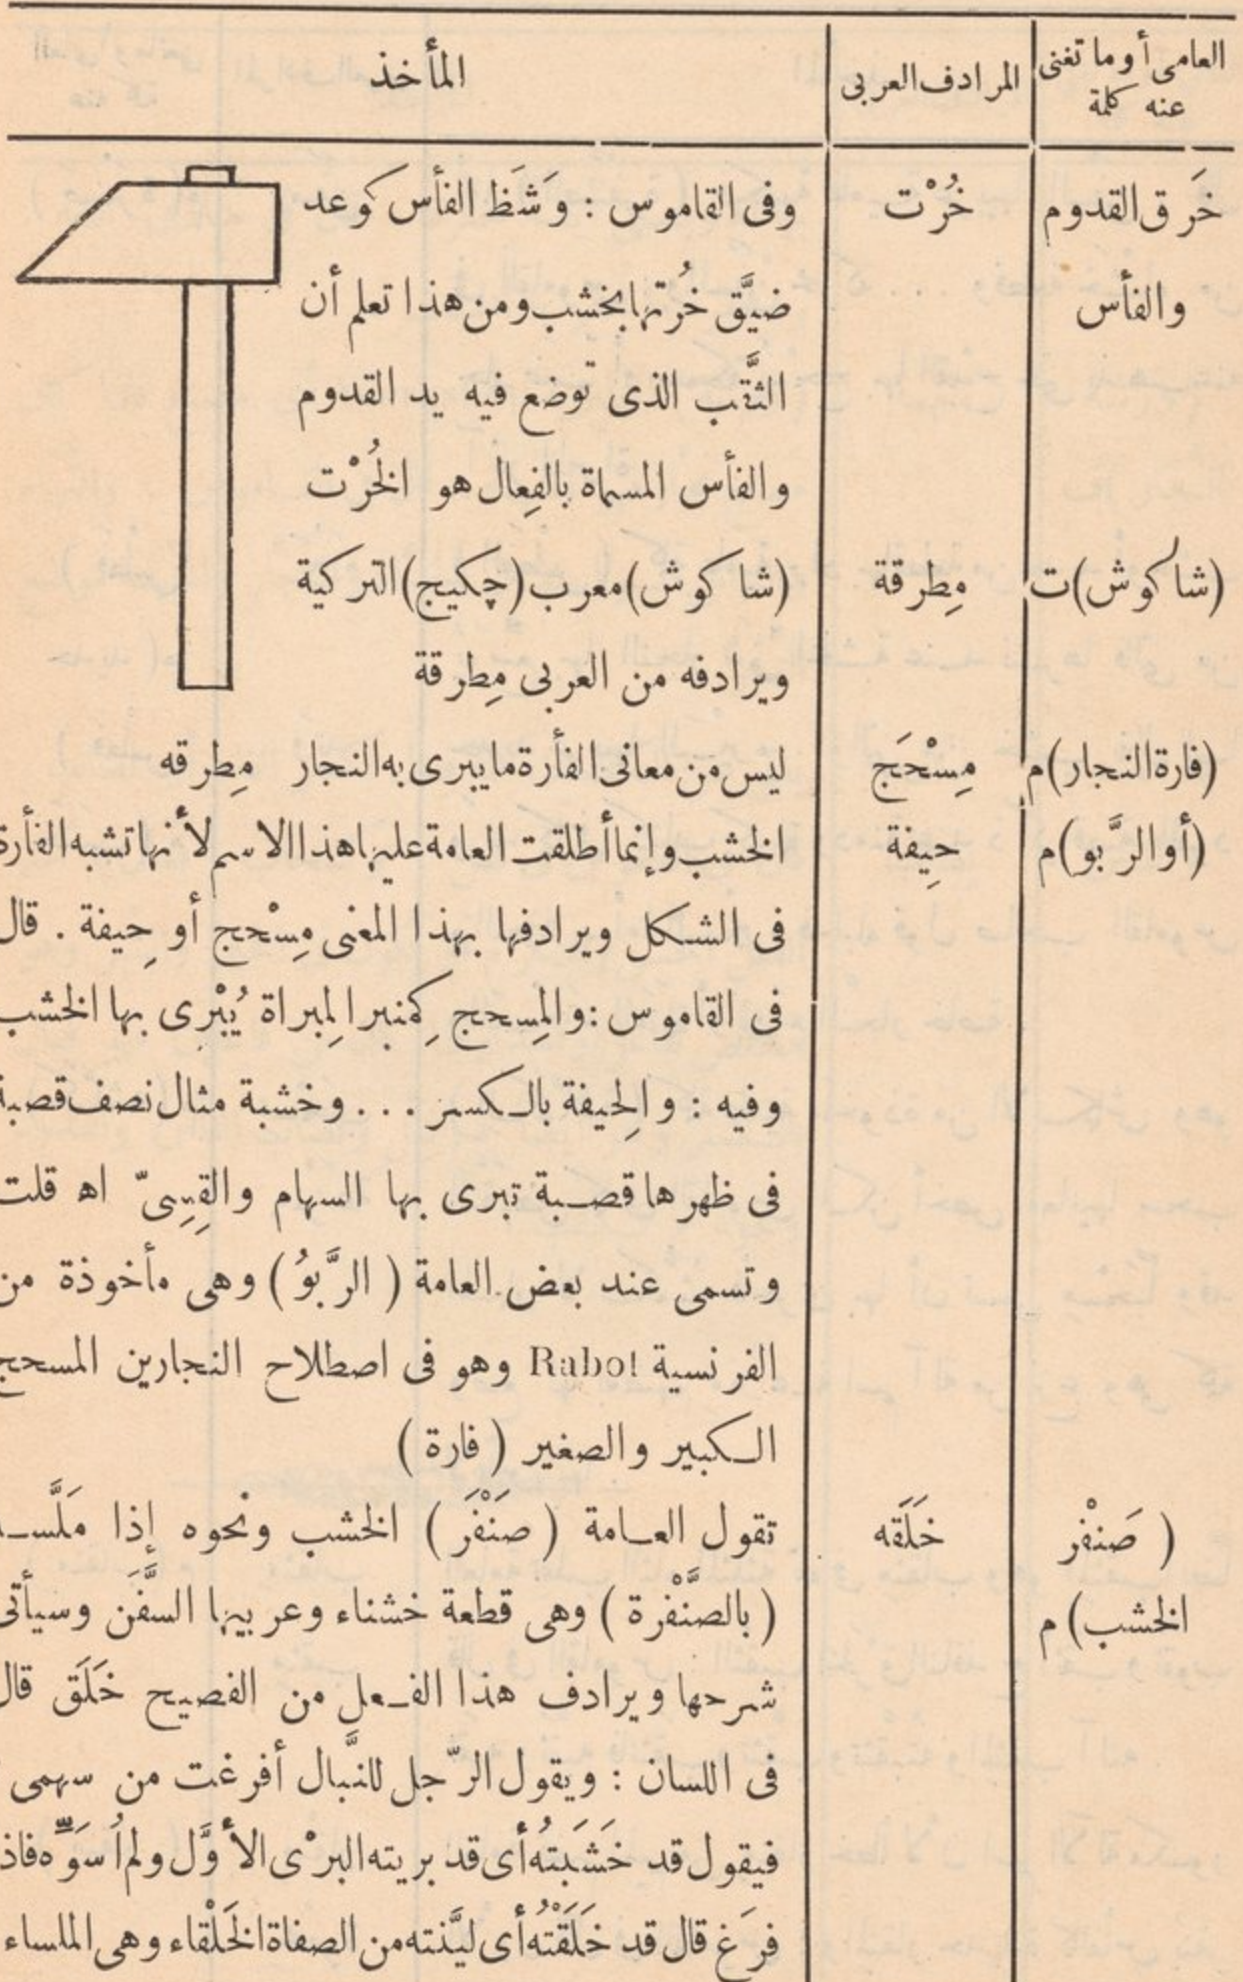 العامى أو ما تغنى عنه كلمة | المرادف العربى | المأخذ
خَرق القدوم | خُرْت | وفى القاموس : وَشَظ الفأس كوعد
والفأس | ضيَّق خُرتها بخشب ومن هذا تعلم أن
الثَّقب الذى توضع فيه يد القدوم
والفأس المسماة بالفِعال هو الخُرْت
(شاكوش) ت | مِطرقة | (شاكوش) معرب (چكيج) التركية
ويرادفه من العربى مِطرقة
(فارة النجار) م | مِسْحَج | ليس من معانى الفأرة ما يبرى به النجار مِطرقه
(أو الرَّبو) م | حِيفة | الخشب وإنما أطلقت العامة عليها هذا الاسم لأنها تشبه الفأرة
فى الشكل ويرادفها بهذا المعنى مِسْحج أو حِيفة . قال
فى القاموس : والمِسحج كِمنبر المِبراة يُبْرى بها الخشب
وفيه : والحِيفة بالكسر ... وخشبة مثال نصف قصبة
فى ظهرها قصبة تبرى بها السهام والقِسِىّ اه قلت
وتسمى عند بعض العامة ( الرَّبوُ ) وهى مأخوذة من
الفرنسية Rabot وهو فى اصطلاح النجارين المسحج
الكبير والصغير ( فارة )
( صَنْفر | خَلَّقه | تقول العامة ( صَنْفَرَ ) الخشب ونحوه إذا مَلَّسه
الخشب) م | ( بالصَّنْفرة ) وهى قطعة خشناء وعربيها السَّفَن وسيأتى
شرحها ويرادف هذا الفعل من الفصيح خَلَّق قال
فى اللسان : ويقول الرّجل للنَّبال أفرغت من سهمى
فيقول قد خَشَبتُه أى قد بريته البرْى الأوَّل ولم أُسَوِّه فاذ
فرَغ قال قد خَلَقْتُه أى ليَّنته من الصفاة الخَلْقاء وهى الملساء